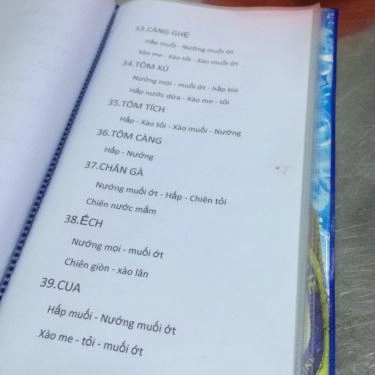 33.CÀNG GHẸ
Hấp muối - Nướng muối ớt
Xào me - Xào tỏi - Xào muối ớt
34.TÔM XÚ
Nướng mọi - muối ớt - hấp bia
Hấp nước dừa - Xào me - tỏi
35.TÔM TÍCH
Hấp - Xào tỏi - Xào muối - Nướng
36.TÔM CÀNG
Hấp - Nướng
37.CHÂN GÀ
Nướng muối ớt - Hấp - Chiên tỏi
Chiên nước mắm
38.ẾCH
Nướng mọi - muối ớt
Chiên giòn - xào lăn
39.CUA
Hấp muối - Nướng muối ớt
Xào me - tỏi - muối ớt